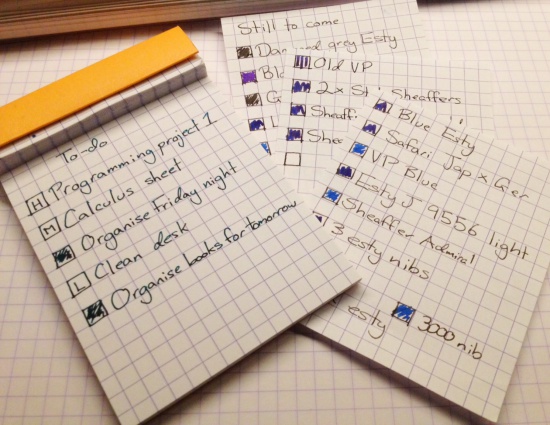 To-do
H Programming project 1
M Calculus sheet
Organise friday night
L Clean desk
Organise books for tomorrow
Still to come
grey Esty
Old VP
2x St Sheaffers
Sheaff
Shea
Blue Esty
Safari Jap x Ger
VP Blue
Esty J 9556 light
Sheaffer Admiral
3 esty nibs
esty
3000 nib